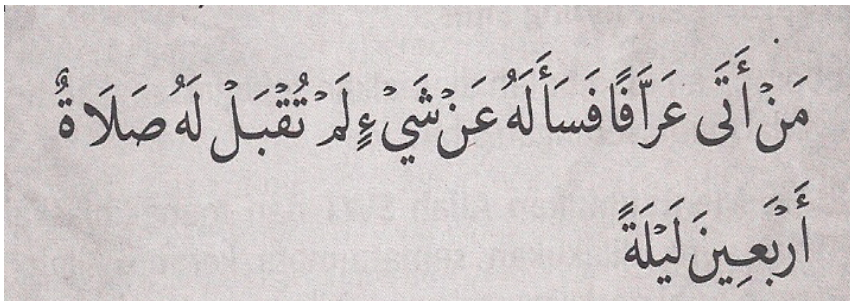 مَنْ أَتَى عَرَّافًا فَسَأَلَهُ عَنْ شَيْءٍ لَمْ تُقْبَلْ لَهُ صَلَاةٌ
أَرْبَعِينَ لَيْلَةً